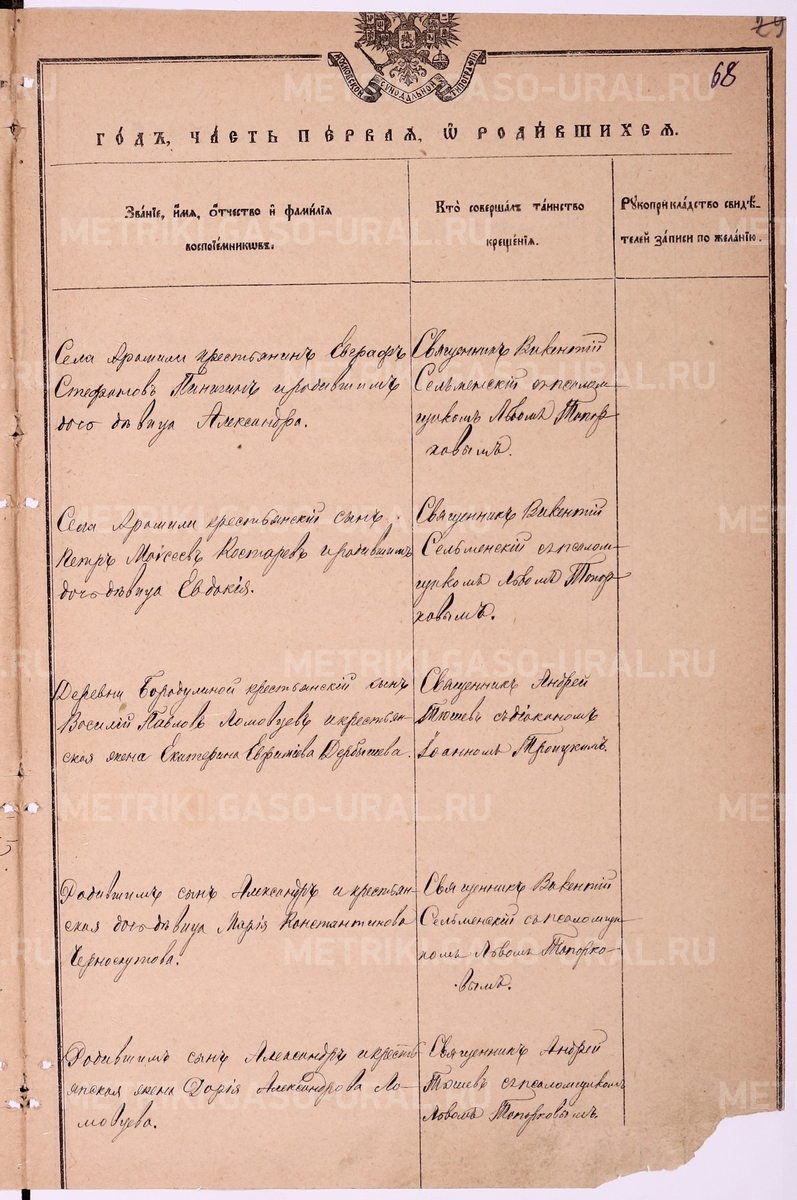 29
68
МОСКОВСКОЙ СѴНОДАЛЬНОЙ ТИПОГРАФІИ
ГО́ДЪ, ЧА́СТЬ ПЕ́РВАѦ, Ѡ҆ РОДИ́ВШИХСѦ.
Зва́нїе, и҆́мѧ, ѻ҆́тчество и҆ фами́лїѧ
воспрїе́мникѡвъ.
Кто̀ соверша́лъ та́инство
креще́нїѧ.
Рꙋкоприкла́дство свидѣ́-
телей за́писи по жела́нїю.
Села Арамили крестьянинъ Евграфъ
Стефановъ Пинягинъ и родившимъ
дочь дѣвица Александра.
Священникъ Викентій
Сельменскій съ псалом-
щикомъ Львомъ Топор-
ковымъ.
Села Арамили крестьянскій сынъ
Петръ Моѵсеевъ Костаревъ и родившимъ
дочь дѣвица Евдокія.
Священникъ Викентій
Сельменскій съ псалом-
щикомъ Львомъ Топор-
ковымъ.
Деревни Бородулиной крестьянскій сынъ
Василій Павловъ Ломовцевъ и крестьян-
ская жена Екатерина Евфимиева Дербышева.
Священникъ Андрей
съ діакономъ
Іоанномъ Троицкимъ.
Родившимъ сынъ Александръ и крестьян-
ская дочь дѣвица Марія Константинова
Черноскутова.
Священникъ Викентій
Сельменскій съ псаломщи-
комъ Львомъ Топорко-
вымъ.
Родившимъ сынъ Александръ и кресть-
янская жена Дарія Александрова Ло-
мовцева.
Священникъ Андрей
съ псаломщикомъ
Львомъ Топорковымъ.
METRIKI.GASO-URAL.RU